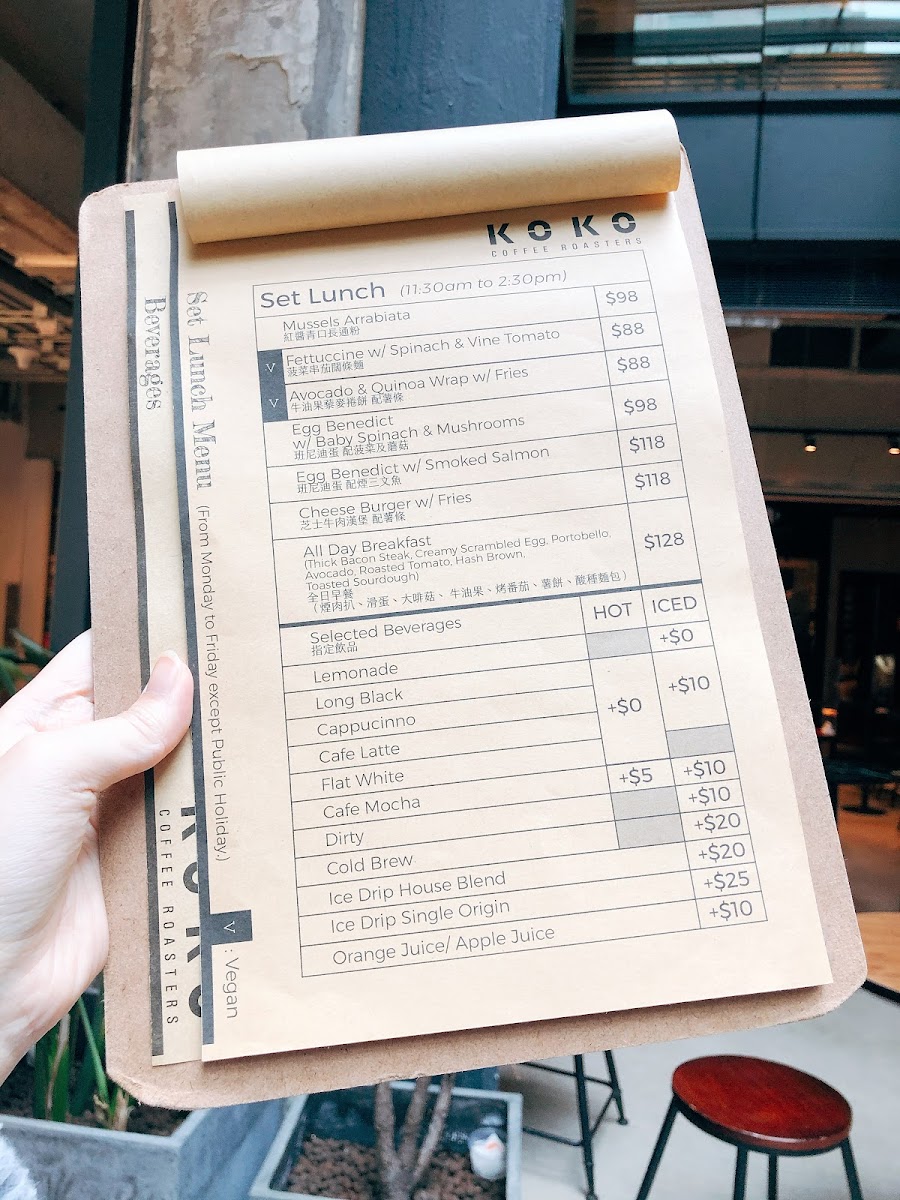 KOKO
COFFEE ROASTERS
Set Lunch (11:30am to 2:30pm)
Mussels Arrabiata $98
紅醬青口長通粉
V Fettuccine w/ Spinach & Vine Tomato $88
菠菜串茄闊條麵
V Avocado & Quinoa Wrap w/ Fries $88
牛油果藜麥捲餅 配薯條
Egg Benedict
w/ Baby Spinach & Mushrooms $98
班尼迪蛋 配菠菜及蘑菇
Egg Benedict w/ Smoked Salmon $118
班尼迪蛋 配煙三文魚
Cheese Burger w/ Fries $118
芝士牛肉漢堡 配薯條
All Day Breakfast $128
(Thick Bacon Steak, Creamy Scrambled Egg, Portobello,
Avocado, Roasted Tomato, Hash Brown,
Toasted Sourdough)
全日早餐
（煙肉扒、滑蛋、大啡菇、牛油果、烤番茄、薯餅、酸種麵包）
Selected Beverages HOT ICED
指定飲品
Lemonade +$0
Long Black +$0 +$10
Cappucinno
Cafe Latte
Flat White
Cafe Mocha +$5 +$10
Dirty +$10
Cold Brew +$20
Ice Drip House Blend +$20
Ice Drip Single Origin +$25
Orange Juice/ Apple Juice +$10
Set Lunch Menu (From Monday to Friday except Public Holiday.)
V : Vegan
Beverages
KOKO
COFFEE ROASTERS